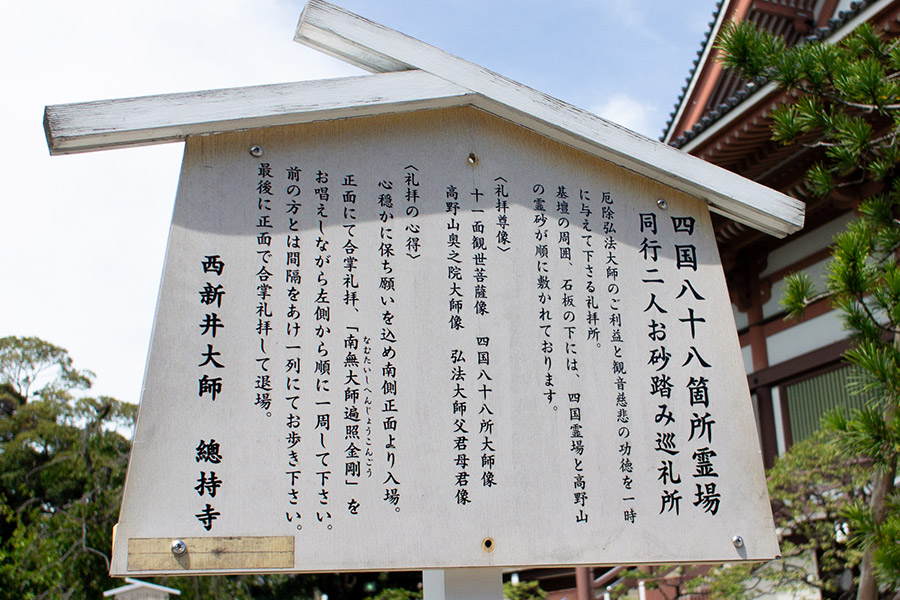 四国八十八箇所霊場
同行二人お砂踏み巡礼所
厄除弘法大師のご利益と観音慈悲の功徳を一時
に与えて下さる礼拝所。
基壇の周囲、石板の下には、四国霊場と高野山
の霊砂が順に敷かれております。
〈礼拝尊像〉
十一面観世音菩薩像 四国八十八所大師像
高野山奥之院大師像 弘法大師父君母君像
〈礼拝の心得〉
心穏かに保ち願いを込め南側正面より入場。
正面にて合掌礼拝、「南無大師遍照金剛」を
なむたいしへんじょうこんごう
お唱えしながら左側から順に一周して下さい。
前の方とは間隔をあけ一列にてお歩き下さい。
最後に正面で合掌礼拝して退場。
西新井大師 總持寺